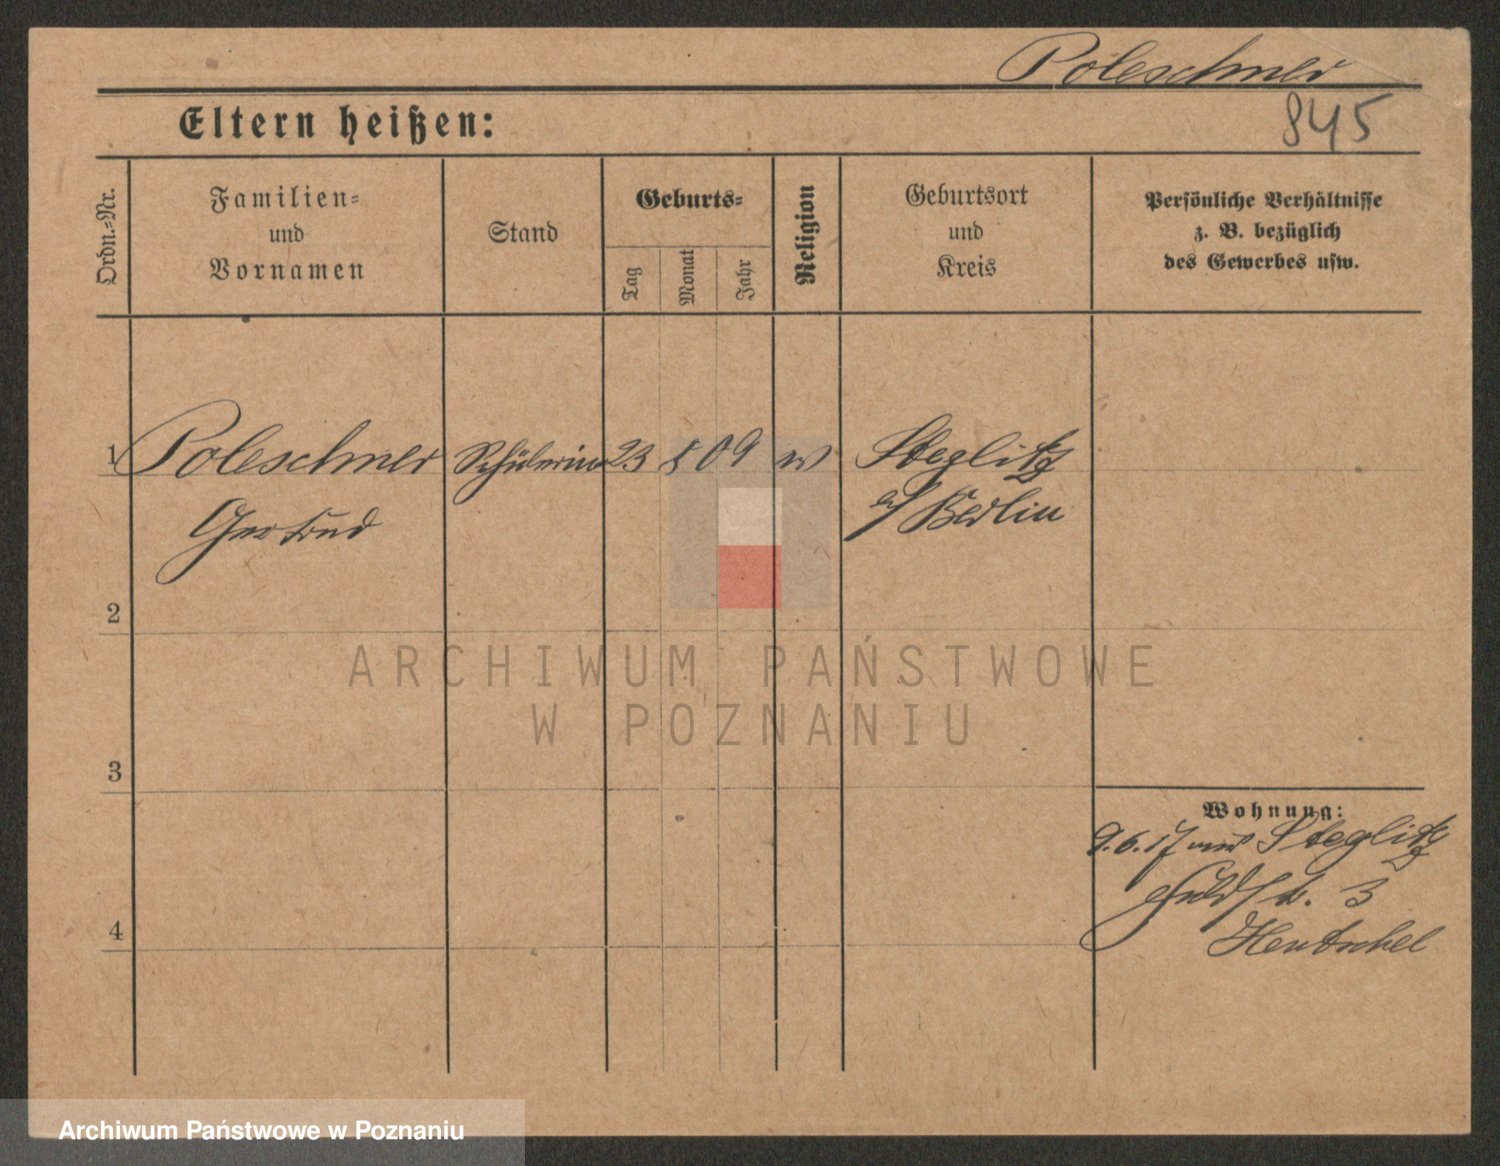 Poleschner
845
Eltern heißen:
Ordn.-Nr.
Familien-
und
Vornamen
Stand
Geburts-
Tag
Monat
Jahr
Religion
Geburtsort
und
Kreis
Persönliche Verhältnisse
z. B. bezüglich
des Gewerbes usw.
1 Poleschner Schülerin 23 8 09 Steglitz
Gertrud Berlin
2
ARCHIWUM PAŃSTWOWE
W POZNANIU
3
Wohnung:
9.6.17 Steglitz
3
4
Hentschel
Archiwum Państwowe w Poznaniu